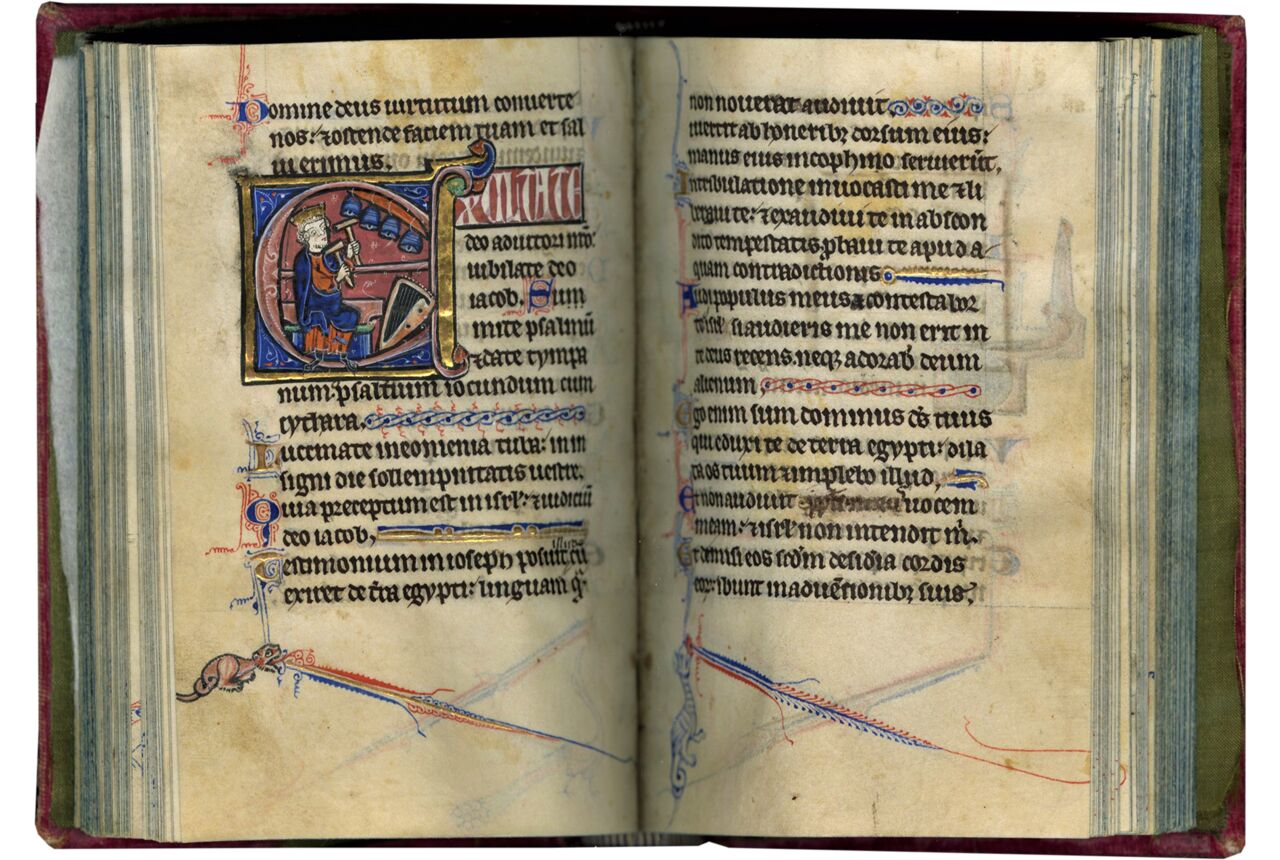 Domine deus uirtutum conuerte
nos: ⁊ ostende faciem tuam et sal
ui erimus.
EXULTATE
deo adiutori nr̄o:
iubilate deo
iacob. Sum
mite psalmū
⁊ date tympa
num: psaltium iocundum cum
cythara.
Buccinate in neomenia tuba: in in
signi die sollempnitatis uestre.
Quia preceptum est in isrl̄: ⁊ iudiciū
deo iacob,
Testimonium in ioseph posuit illud cū
exiret de t̄ra egypti: linguam q̄
non nouerat audiuit.
Diuertit ab honeribꝫ dorsum eius:
manus eius in cophino seruierūt.
In tribulatione inuocasti me ⁊ li
beraui te: ⁊ exaudiui te in abscon
dito tempestatis ꝓbaui te apud a
quam contradictionis
Audi populus meus ⁊ contestabor
te isrl̄ si audieris me non erit in
te deus recens. neqꝫ adorab̄ deum
alienum,
Ego enim sum dominus d̄s tuus
qui eduxi te de terra egypti: dila
ta os tuum ⁊ implebo illud,
Et non audiuit uocem
meam: ⁊ isrl̄ non intendit m̄.
Et dimisi eos scd̄m desidia cordis
eor: ibunt in aduētionibꝫ suis.